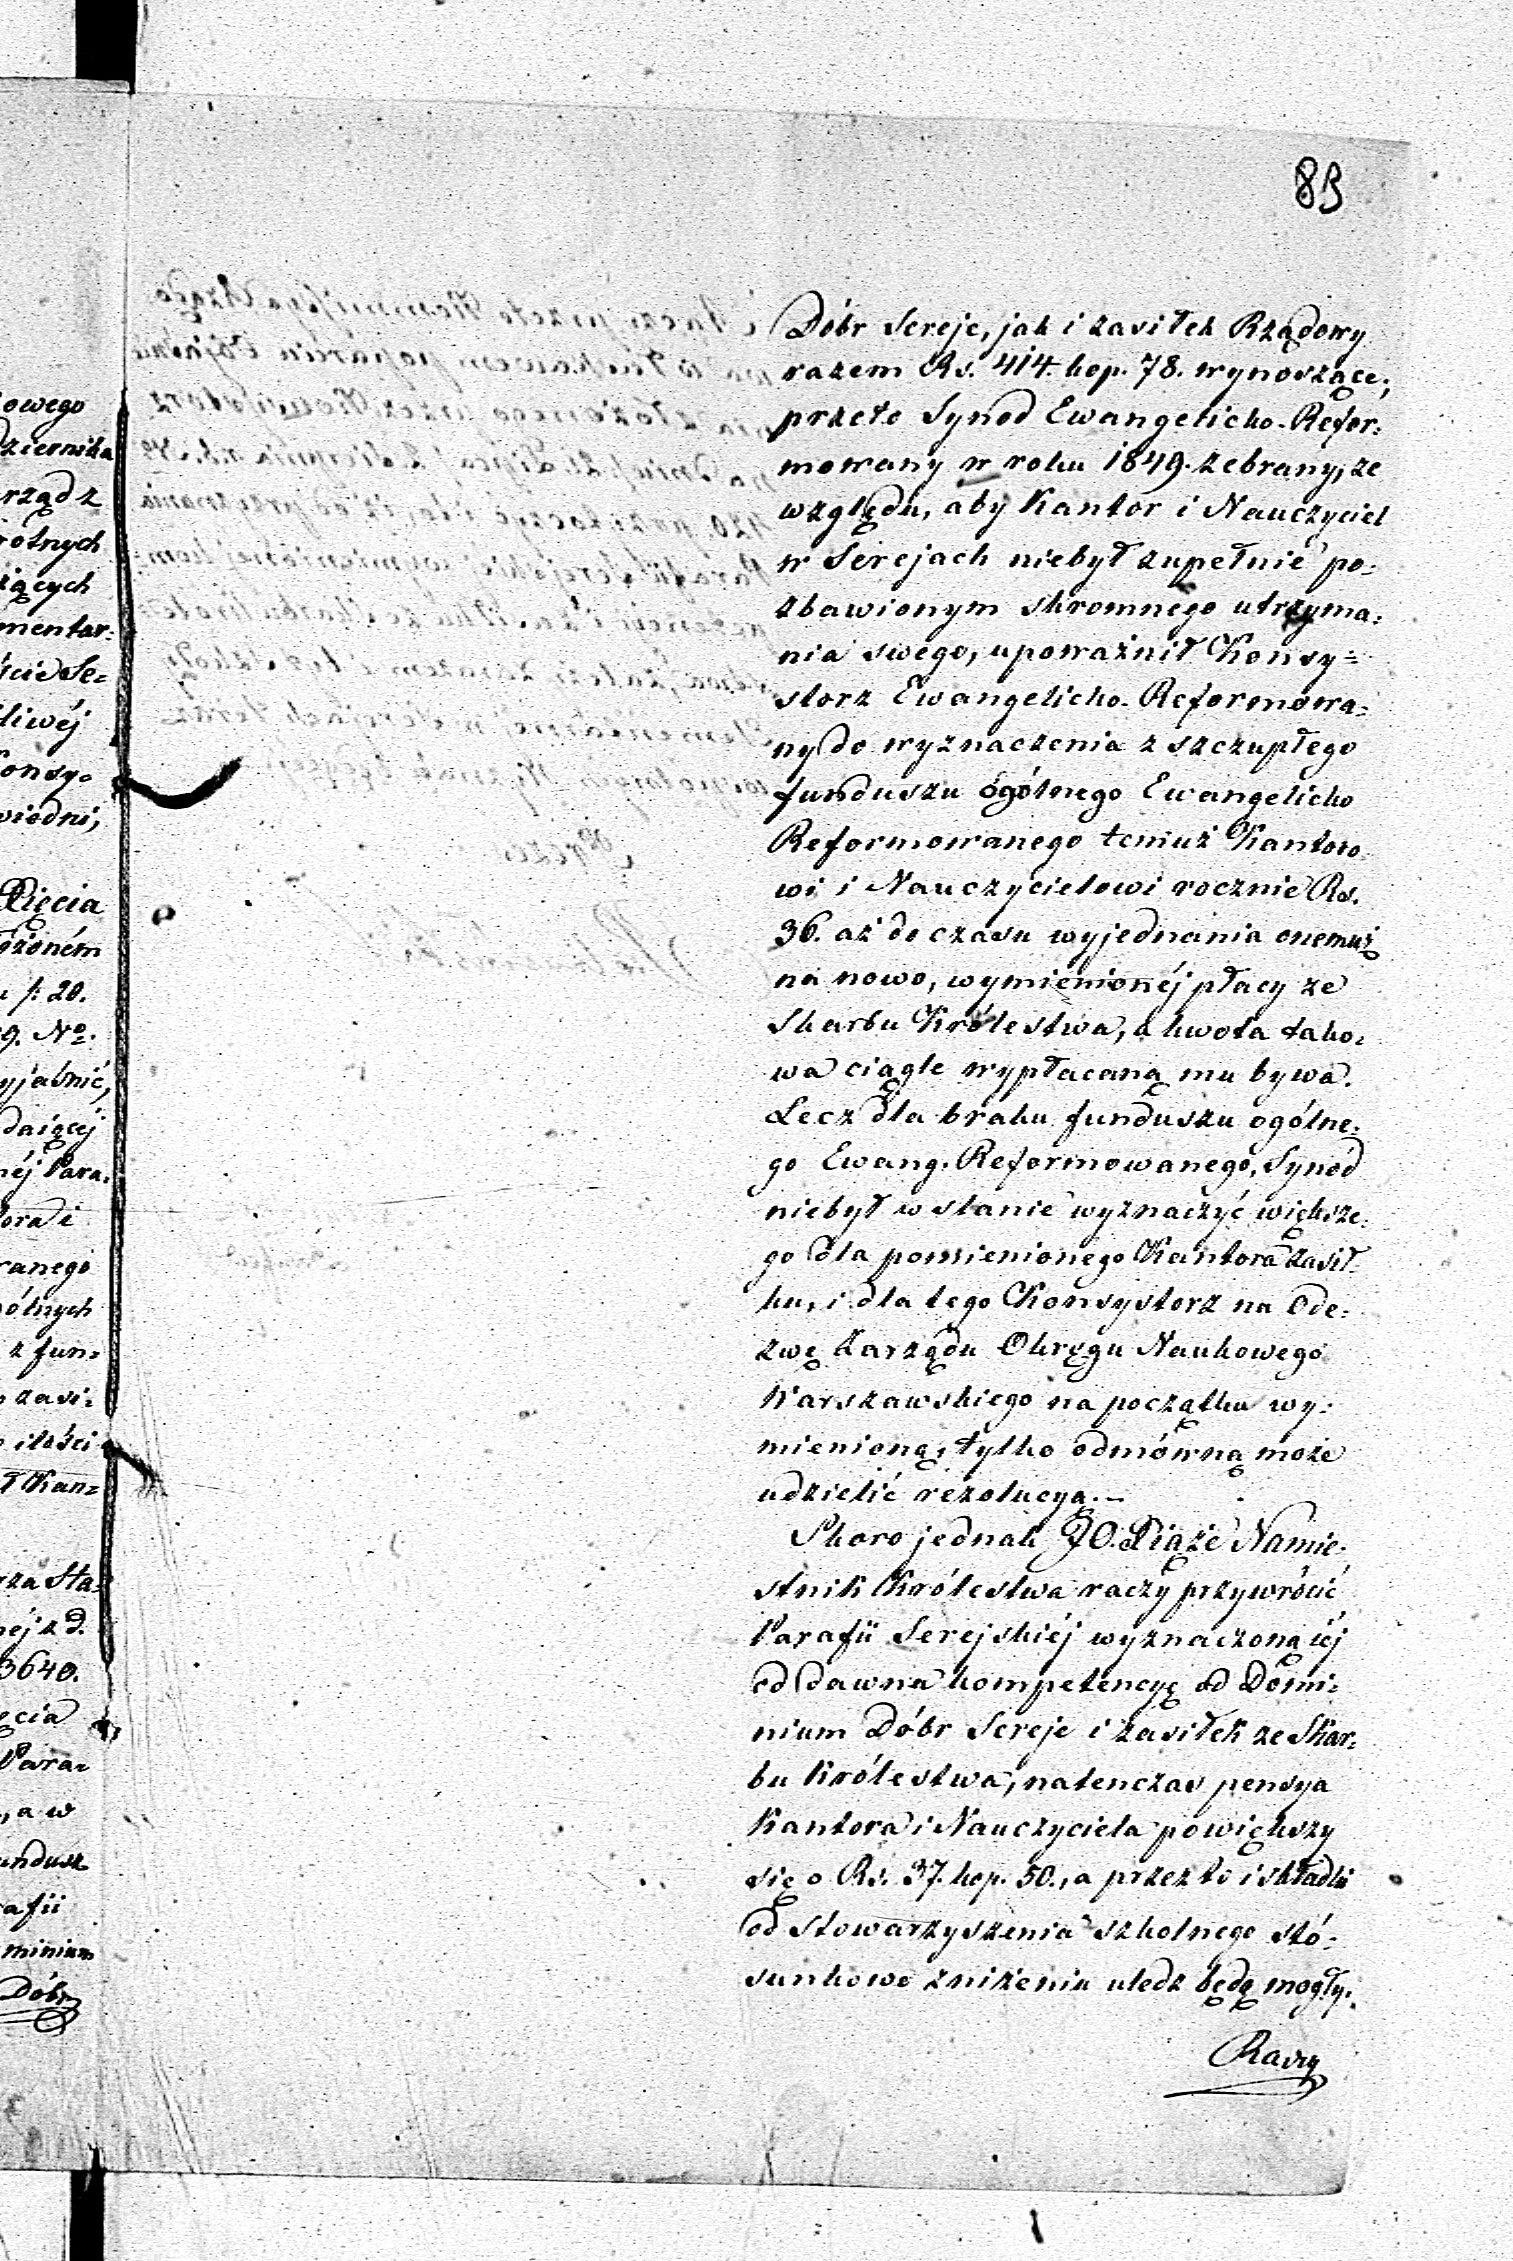 83
Dóbr Sereje, jak i zasiłek Rządowy
razem Rs. 414. kop. 78. wynoszące;
przeto Synod Ewangelicko-Refor:
mowany w roku 1849. zebrany, ze
względu, aby Kantor i Nauczyciel
w Serejach niebył zupełnie po:
zbawionym skromnego utrzyma:
nia swego, upoważnił Konsy=
storz Ewangelicko-Reformowa:
ny do wyznaczenia z szczupłego
funduszu ogólnego Ewangelicko
Reformowanego temuż Kantoro
wi i Nauczycielowi rocznie Rs.
36. aż do czasu wyjednania onemuż
na nowo, wymienionéj płacy ze
Skarbu Królestwa, a kwota tako:
wa ciągle wypłacaną mu bywa.
Lecz dla braku funduszu ogólne:
go Ewang. Reformowanego, Synod
niebył w stanie wyznaczyć większe:
go dla pomienionego Kantora zasił:
ku, i dla tego Konsystorz na Ode:
zwę Zarządu Okręgu Naukowego
Warszawskiego na początku wy:
mienioną, tylko odmówną może
udzielić rezolucyą.—
Skoro jednak JO. Xiąże Namie:
stnik Królestwa raczy przywrócić
Parafii Serejskiéj wyznaczoną iéj
od dawna kompetencyę od Domi:
nium Dóbr Sereje i zasiłek ze Skar:
bu Królestwa, natenczas pensya
Kantora i Nauczyciela powiększy
się o Rs. 37. kop. 50., a przez to i składki
od stowarzyszenia szkolnego stó:
sunkowo zniżeniu uledz będą mogły.
Raczy
owego
dziernika
rząd z
ących
mentar:
ście Se=
liwéj
Konsy=
wiedni,
Xięcia
ożoném
20.
9. No.
yjaśnić,
daiącéj
néj Para:
tora i
ranego
ólnych
z fun:
zasi:
ilości
ł Kan=
rza Sta:
néj z d.
3640.
ęcia
Para=
, a w
undusz
afii
minium
Dóbr